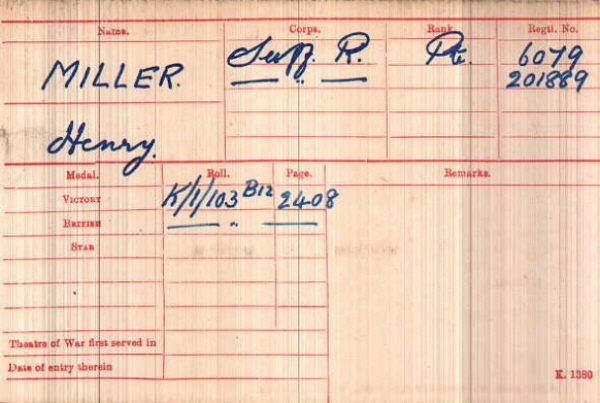 Name. Corps. Rank. Regtl. No.
MILLER. Suff. R. Pte. 6079
— " — 201889
Henry.
Medal. Roll. Page. Remarks.
VICTORY K/1/103 B12 2408
BRITISH — " —
STAR
Theatre of War first served in
Date of entry therein
K. 1380